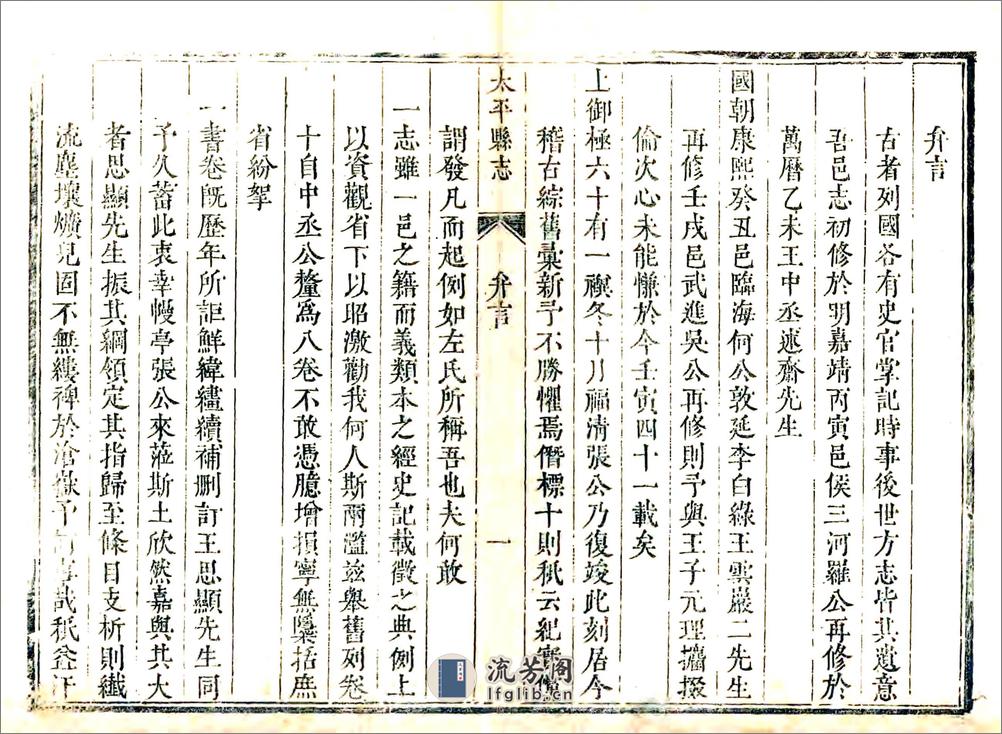 弁言
古者列國各有史官掌記時事後世方志皆其遺意
吾邑志初修於明嘉靖丙寅邑侯三河羅公再修於
萬曆乙未王中丞述齋先生
國朝康熙癸丑邑臨海何公敦延李白綠王雲巖二先生
再修壬戌邑武進吳公再修則予與王子元理攟掇
倫次心未能慊於今壬寅四十一載矣
上御極六十有一禩冬十月福清張公乃復竣此刻居今
稽古綜舊彙新予不勝懼焉僭標十則秖云紀實
太平縣志
弁言
一
謂發凡而起例如左氏所稱吾也夫何敢
一志雖一邑之籍而義類本之經史記載徵之典例上
以資觀省下以昭激勸我何人斯兩濫兹舉舊列卷
十自中丞公釐爲八卷不敢憑臆增損寧無檃括庶
省紛挐
一書卷旣歷年所詎鮮緯繣續補刪訂王思顯先生同
予久蓄此衷幸幔亭張公來蒞斯土欣然嘉與其大
者思顯先生振其綱領定其指歸至條目支析則纖
流塵壤爝見固不無縷裨於滄嶽予哉秖益汗
流芳阁
lfglib.cn